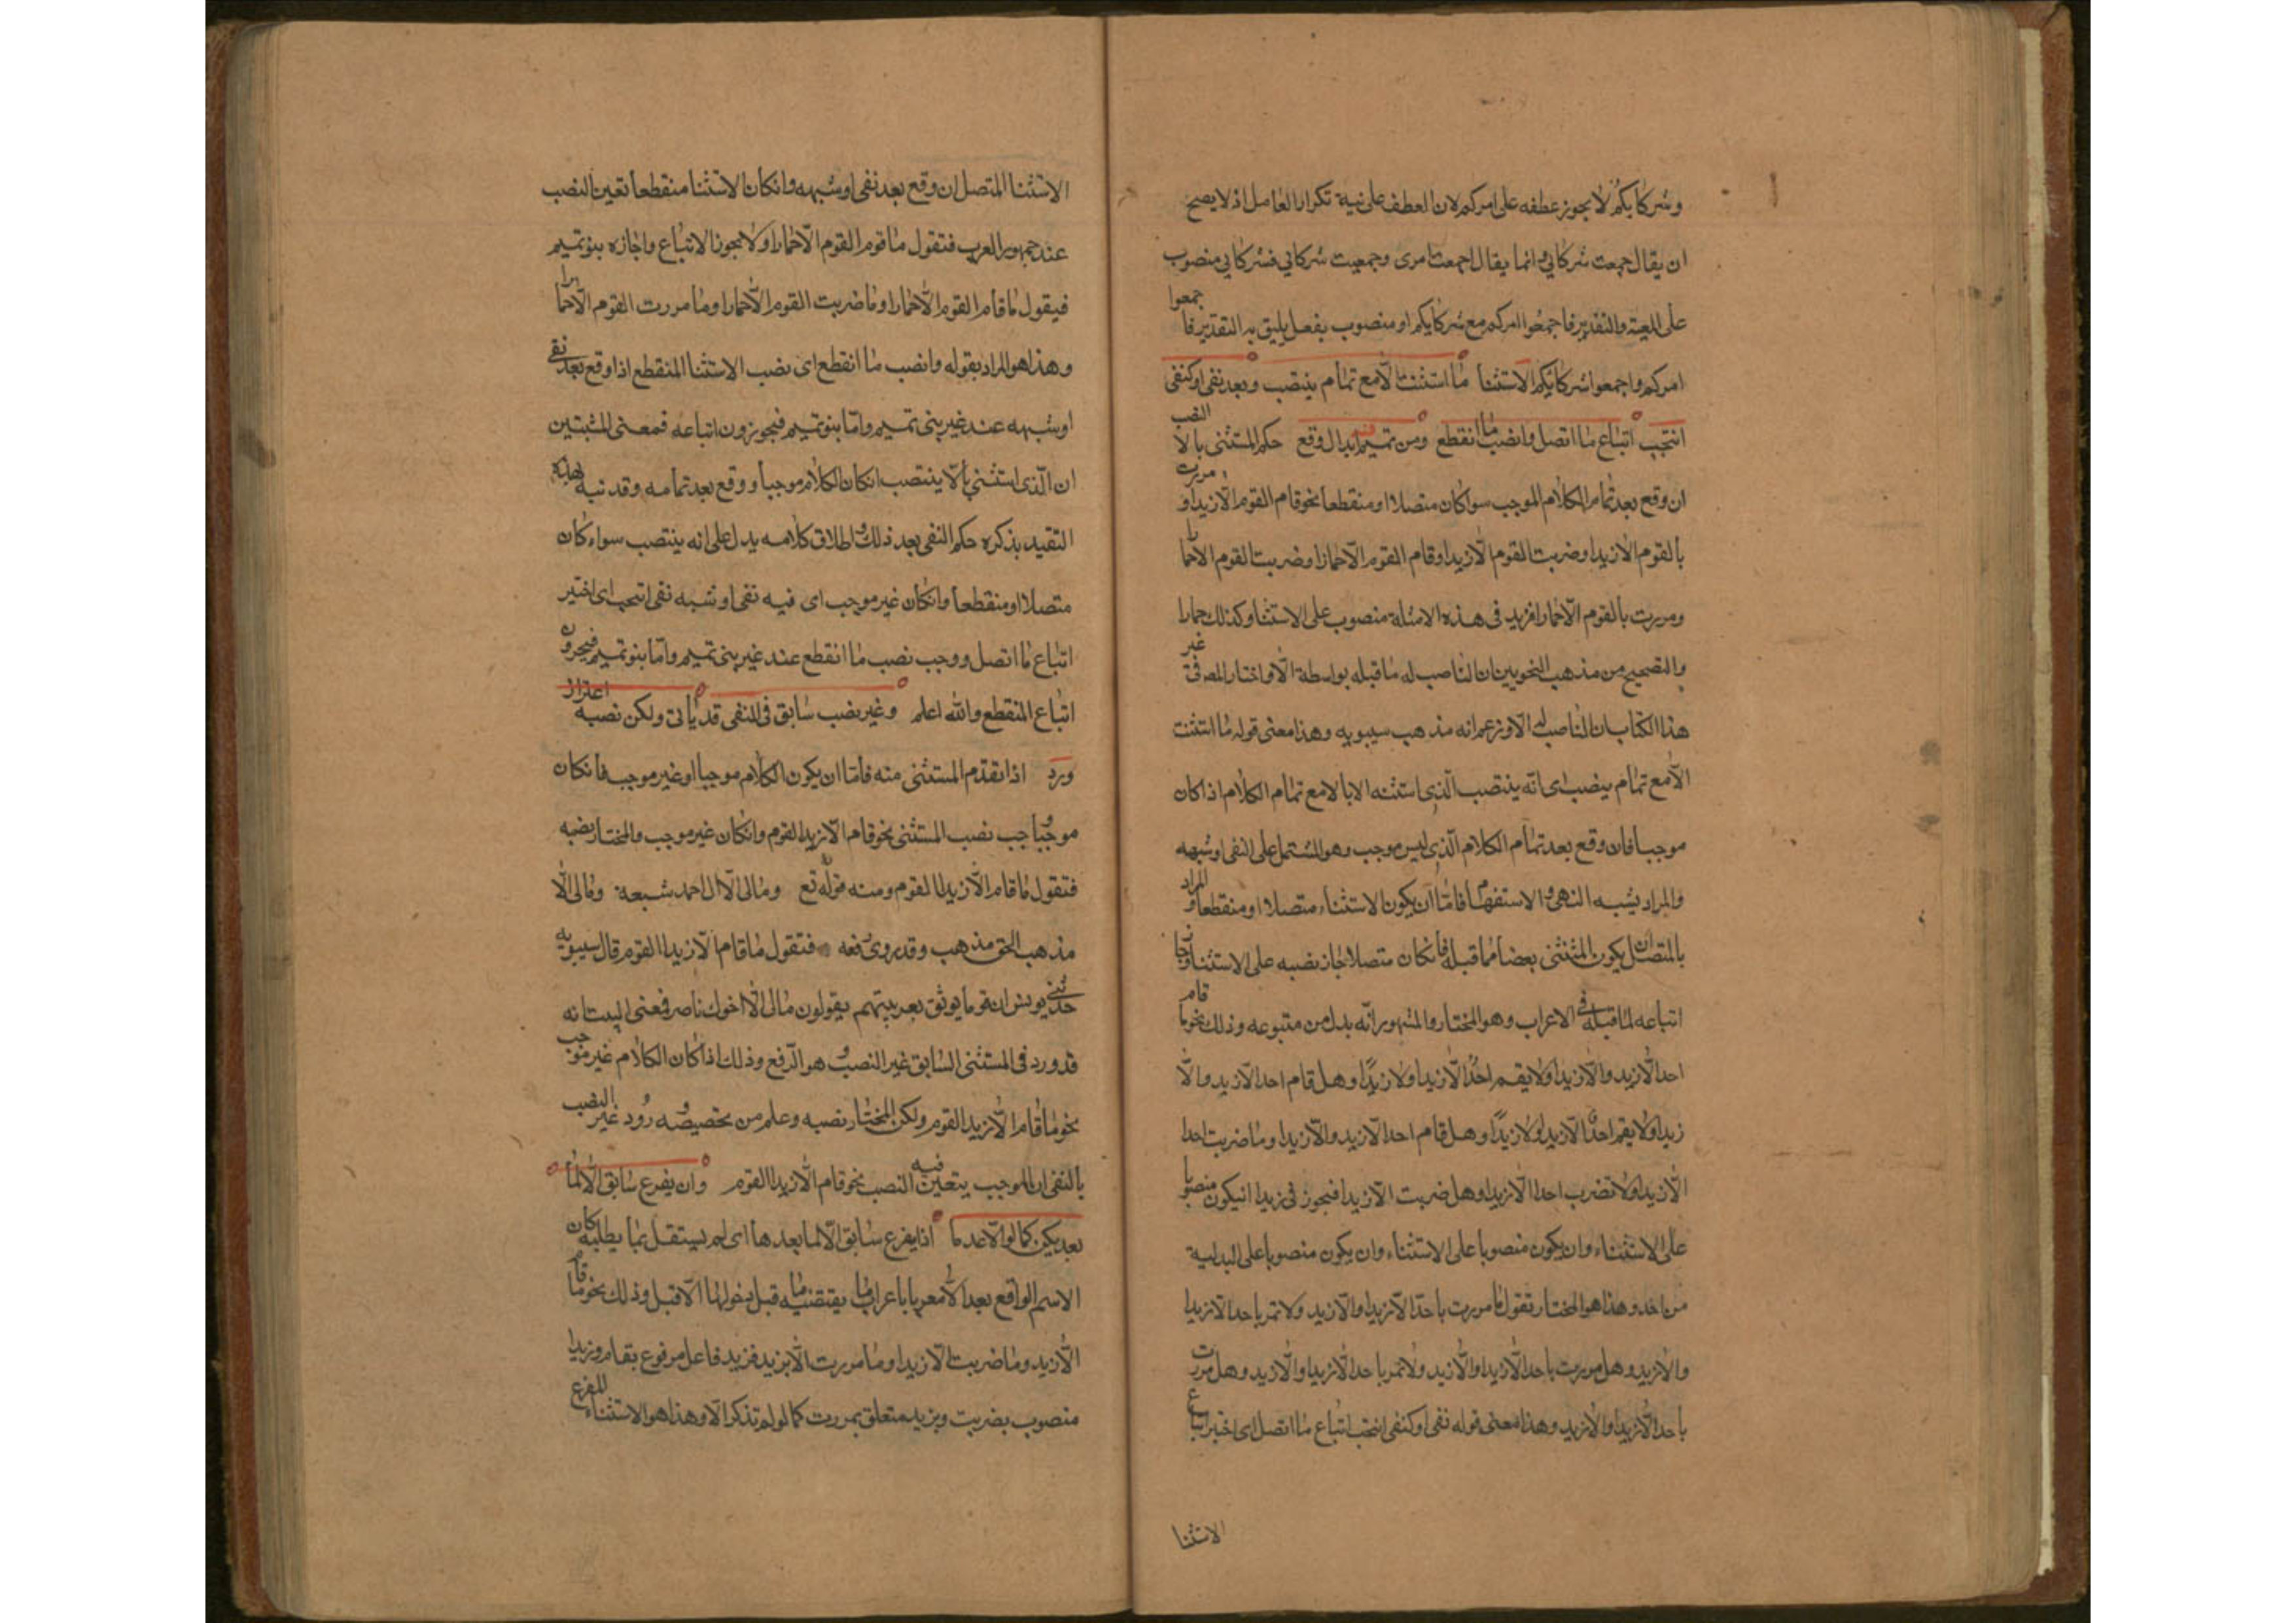 وشركايكم لا يجوز عطفه على امركم لان العطف على نية تكرار العامل اذ لا يصح
ان يقال جمعت شركاي وانما يقال اجمعت امرى وجمعت شركاي فشركاي منصوب
على المعية والتقدير فاجمعوا امركم مع شركايكم او منصوب بفعل يليق به التقدير فاجمعوا
امركم واجمعوا شركايكم الاستثنا ما استثنت الا مع تمام ينتصب وبعد نفى او كنفى
انتجب اتباع ما اتصل وانصب ما انقطع وعن تميم فيه ابدال وقع حكم المستثنى بالا النصب
ان وقع بعد تمام الكلام الموجب سوا كان متصلا او منقطعا نحو قام القوم الا زيدا ومررت
بالقوم الا زيدا وضربت القوم الا زيدا وقام القوم الا حمارا وضربت القوم الا حمارا
ومررت بالقوم الا حمارا فزيد في هذه الامثلة منصوب على الاستثنا وكذلك حمارا
والصحيح من مذهب النحويين ان الناصب له ما قبله بواسطة الا واختار المص فى غير
هذا الكتاب ان الناصب له الا وزعم انه مذهب سيبويه وهذا معنى قوله ما استثنت
الا مع تمام ينصب اى انه ينتصب الذى استثنه الا بالا مع تمام الكلام اذا كان
موجبا فان وقع بعد تمام الكلام الذى ليس موجب وهو المشتمل على النفى او شبهه
والمراد بشبه النهى والاستفهام فاما ان يكون الاستثناء متصلا او منقطعا والمراد
بالمتصل ان يكون المثنثنى بعضا مما قبله فانكان متصلا جاز نصبه على الاستثنا وجاز
اتباعه لما قبله فى الاعراب وهو المختار والمشهور انه بدل من متبوعه وذلك نحو ما قام
احد الا زيد والا زيدا ولا يقم احد الا زيدا ولا زيدا وهل قام احد الا زيد والا
زيدا ولا يقم احد الا زيدا ولا زيدا وهل قام احد الا زيد والا زيدا وما ضربت احدا
الا زيدا ولا تضرب احدا الا زيدا وهل ضربت الا زيدا فيجوز فى زيدا ان يكون منصوبا
على الاستثناء وان يكون منصوبا على الاستثناء وان يكون منصوبا على البدلية
من احد وهذا هو المختار تقول ما مررت باحد الا زيدا والا زيد ولا تمر باحد الا زيدا
والا زيد وهل مررت باحد الا زيدا والا زيد ولا تمر باحد الا زيدا والا زيد وهل مررت
باحد الا زيدا والا زيد وهذا معنى قوله نفى او كنفى انتجب اتباع ما اتصل اى اختير اتباع
الاستثنا
الاستثنا المتصل ان وقع بعد نفى او شبهه وانكان الاستثنا منقطعا تعين النصب
عند جمهور العرب فتقول ما قوم القوم الا حمارا ولا يجوز الاتباع واجازه بنو تميم
فيقول ما قام القوم الا حمارا وما ضربت القوم الا حمارا وما مررت القوم الا حمارا
وهذا هو المراد بقوله وانصب ما انقطع اى نصب الاستثنا المنقطع اذا وقع بعد نفى
او شبهه عند غير بنى تميم واما بنو تميم فيجوزون اتباعه فمعنى المثبتين
ان الذى استثنى بالا ينتصب انكان الكلام موجبا ووقع بعد تمامه وقد نبه بهذا
التقيد بذكره حكم النفى بعد ذلك واطلاق كلامه يدل على انه ينتصب سواء كان
متصلا او منقطعا وانكان غير موجب اى فيه نفى او شبه نفى انتجب اى اختير
اتباع ما اتصل ووجب نصب ما انقطع عند غير بنى تميم واما بنو تميم فيجوزون
اتباع المنقطع والله اعلم وغير نصب سابق فى النفى قد ياتى ولكن نصبه
ورد اذا تقدم المستثنى منه فاما ان يكون الكلام موجبا او غير موجب فانكان
موجبا وجب نصب المستثنى نحو قام الا زيدا القوم وانكان غير موجب والمختار نصبه
فتقول ما قام الا زيدا القوم ومنه قوله تع ومالى الا ال احمد شيعة ومالى الا
مذهب الحق مذهب وقد روى رفعه فتقول ما قام الا زيدا القوم قال سيبويه
حدثنى يونس ان قوما يوثق بعربيتهم يقولون مالى الا اخوك ناصر فمعنى البيت انه
قد ورد فى المستثنى السابق غير النصب وهو الرفع وذلك اذا كان الكلام غير موجب
نحو ما قام الا زيد القوم ولكن المختار نصبه وعلم من تخصيصه ورود غير النصب
بالنفى ان الموجب يتعين فيه النصب نحو قام الا زيدا القوم وان يفرع سابق الا لما
بعد يكن كما لو الا عدما اذا يفرغ سابق الا لما بعدها اى لم يستقل بما يطلبه كان
الاسم الواقع بعد الا معربا باعراب ما يقتضيه ما قبل دخولها الا قبل وذلك نحو ما قام
الا زيد وما ضربت الا زيدا وما مررت الا بزيد فزيد فاعل مرفوع بقام وزيدا
منصوب بضربت وبزيد متعلق بمررت كما لو لم تذكر الا وهذا هو الاستثناء المفرغ